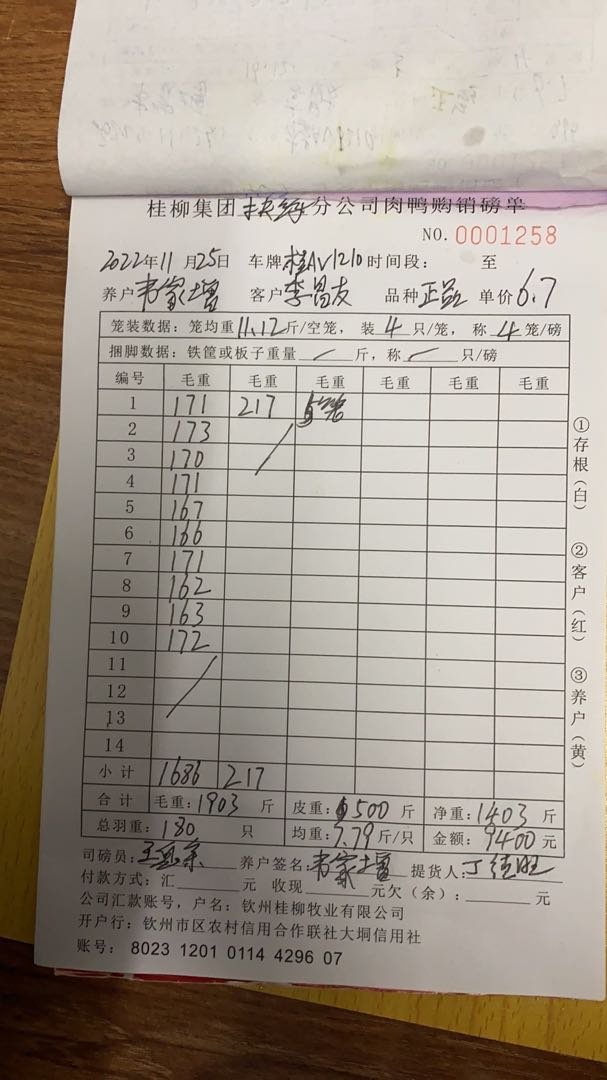 桂柳集团扶绥分公司肉鸭购销磅单
NO. 0001258
2022年11月25日 车牌桂AV1210 时间段： 至
养户 韦家增 客户 李昌友 品种 正品 单价 6.7
笼装数据：笼均重11.12斤/空笼，装4只/笼，称4笼/磅
捆脚数据：铁筐或板子重量 斤，称 只/磅
编号 毛重 毛重 毛重 毛重 毛重 毛重
1 171 217 5笼
2 173
3 170
4 171
5 167
6 166
7 171
8 162
9 163
10 172
11
12
13
14
小计 1686 217
合计 毛重：1903 斤 皮重：500 斤 净重：1403 斤
总羽重：180 只 均重：7.79斤/只 金额：9400元
司磅员： 养户签名：韦家增 提货人：
付款方式：汇 元 收现 元欠（余）： 元
公司汇款账号，户名：钦州桂柳牧业有限公司
开户行：钦州市区农村信用合作联社大垌信用社
账号： 8023 1201 0114 4296 07
①存根（白） ②客户（红） ③养户（黄）